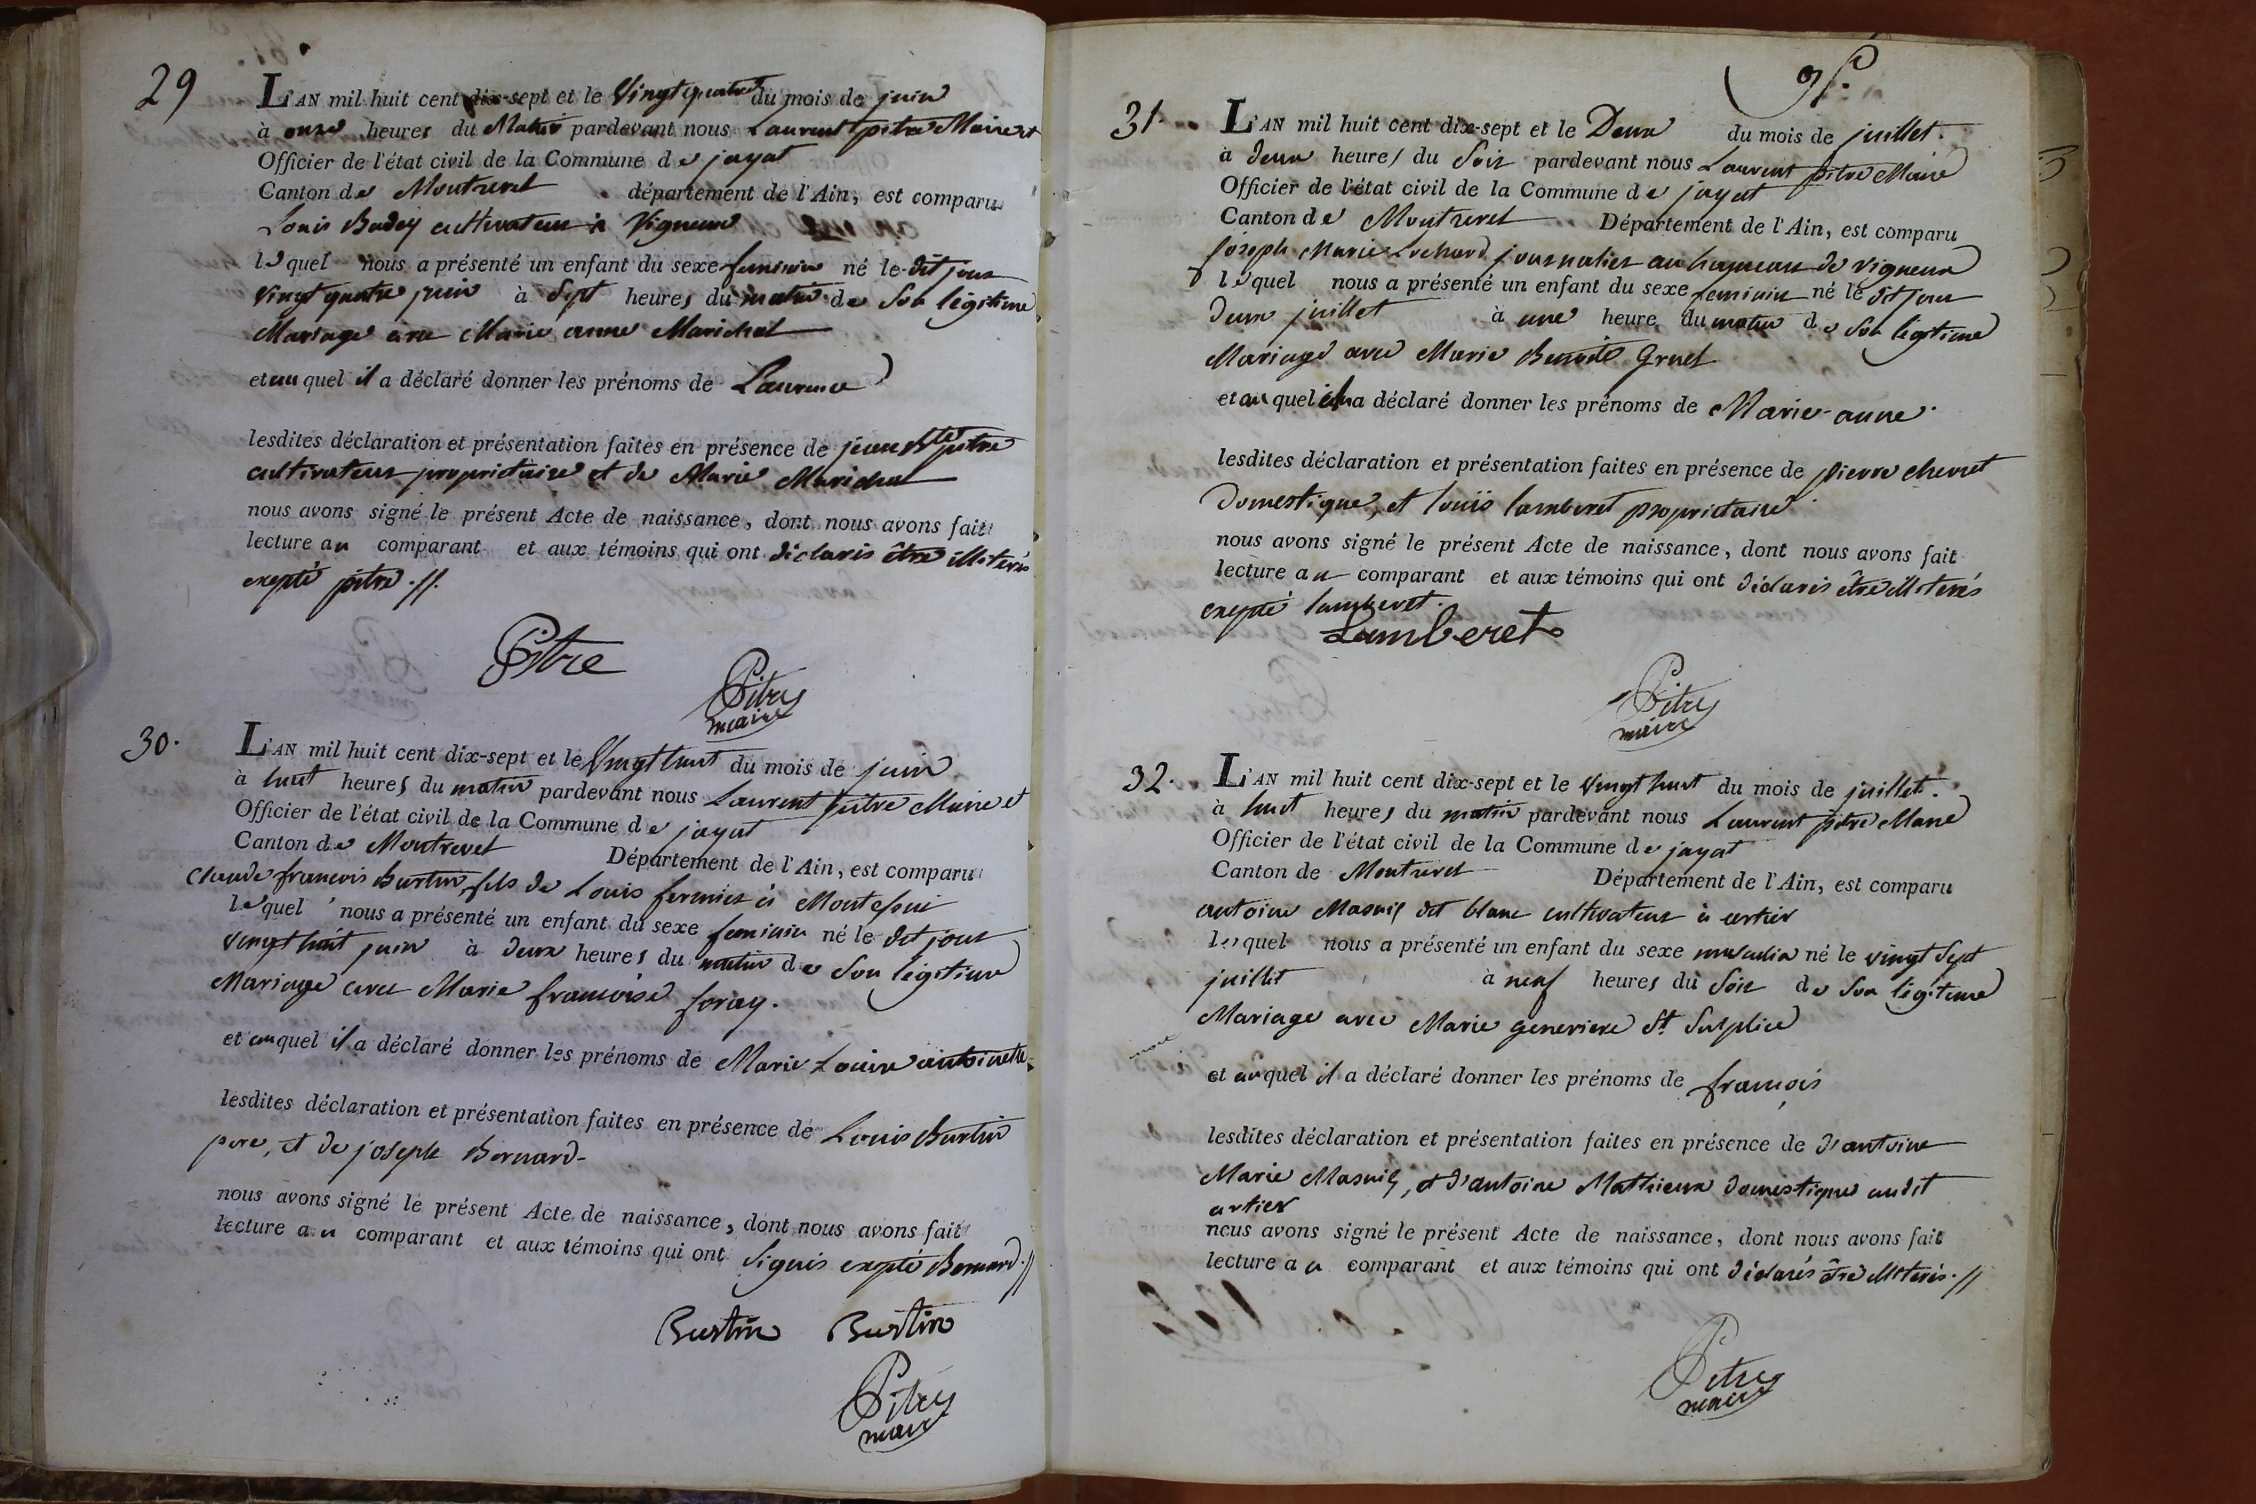 29
L'AN mil huit cent dix-sept et le Vingt quatre du mois de juin
à onze heures du Matin pardevant nous Laurent pitre Maire et
Officier de l'état civil de la Commune de jayat
Canton de Montrevel département de l'Ain, est comparu
Louis Badey cultivateur à Vigneux
lequel nous a présenté un enfant du sexe feminin né le dit jour
vingt quatre juin à Sept heures du matin de Son légitime
Mariage avec Marie anne Marichal
et auquel il a déclaré donner les prénoms de Laurence
lesdites déclaration et présentation faites en présence de jean Bte pitre
cultivateur propriétaire et de Marie Marichal
nous avons signé le présent Acte de naissance, dont nous avons fait
lecture au comparant et aux témoins qui ont déclarés être illiterés
exepté pitre.//.
Pitre
Pitre
maire
30.
L'AN mil huit cent dix-sept et le Vingt huit du mois de juin
à huit heures du matin pardevant nous Laurent pitre Maire et
Officier de l'état civil de la Commune de jayat
Canton de Montrevel Département de l'Ain, est comparu
Claude francois Burtin, fils de Louis fermier à Montefpin
lequel nous a présenté un enfant du sexe feminin né le dit jour
vingt huit juin à deux heures du matin de Son légitime
Mariage avec Marie francoise foray.
et auquel il a déclaré donner les prénoms de Marie Louise antoinette
lesdites déclaration et présentation faites en présence de Louis Burtin
pere, et de joseph Bernard-
nous avons signé le présent Acte de naissance, dont nous avons fait
lecture au comparant et aux témoins qui ont Signés exepté Bernard.//
Burtin Burtin
Pitre
maire
31.
L'AN mil huit cent dix-sept et le Deux du mois de juillet.
à deux heures du Soir pardevant nous Laurent pitre Maire
Officier de l'état civil de la Commune de jayat
Canton de Montrevel Département de l'Ain, est comparu
joseph Marie Lochard journalier au hameau de Vigneux
lequel nous a présenté un enfant du sexe feminin né le dit jour
deux juillet à une heure du matin de Son légitime
Mariage avec Marie Benoite Gruel
et auquel il a déclaré donner les prénoms de Marie-anne.
lesdites déclaration et présentation faites en présence de pierre chevret
domestique, et louis lamberet propriétaire.
nous avons signé le présent Acte de naissance, dont nous avons fait
lecture au comparant et aux témoins qui ont déclarés être illiterés
exepté lamberet.
Lamberet
Pitre
maire
32.
L'AN mil huit cent dix-sept et le Vingt huit du mois de juillet.
à huit heures du matin pardevant nous Laurent pitre Maire
Officier de l'état civil de la Commune de jayat
Canton de Montrevel Département de l'Ain, est comparu
antoine Masnis dit blanc cultivateur à artier
lequel nous a présenté un enfant du sexe masculin né le vingt Sept
juillet à neuf heures du Soir de Son légitime
Mariage avec Marie genevieve St. Sulplice
et auquel il a déclaré donner les prénoms de françois
lesdites déclaration et présentation faites en présence de d'antoine
Marie Masnis, et d'antoine Mathieux domestique audit
artier
nous avons signé le présent Acte de naissance, dont nous avons fait
lecture au comparant et aux témoins qui ont déclarés être illiterés.//
Pitre
maire